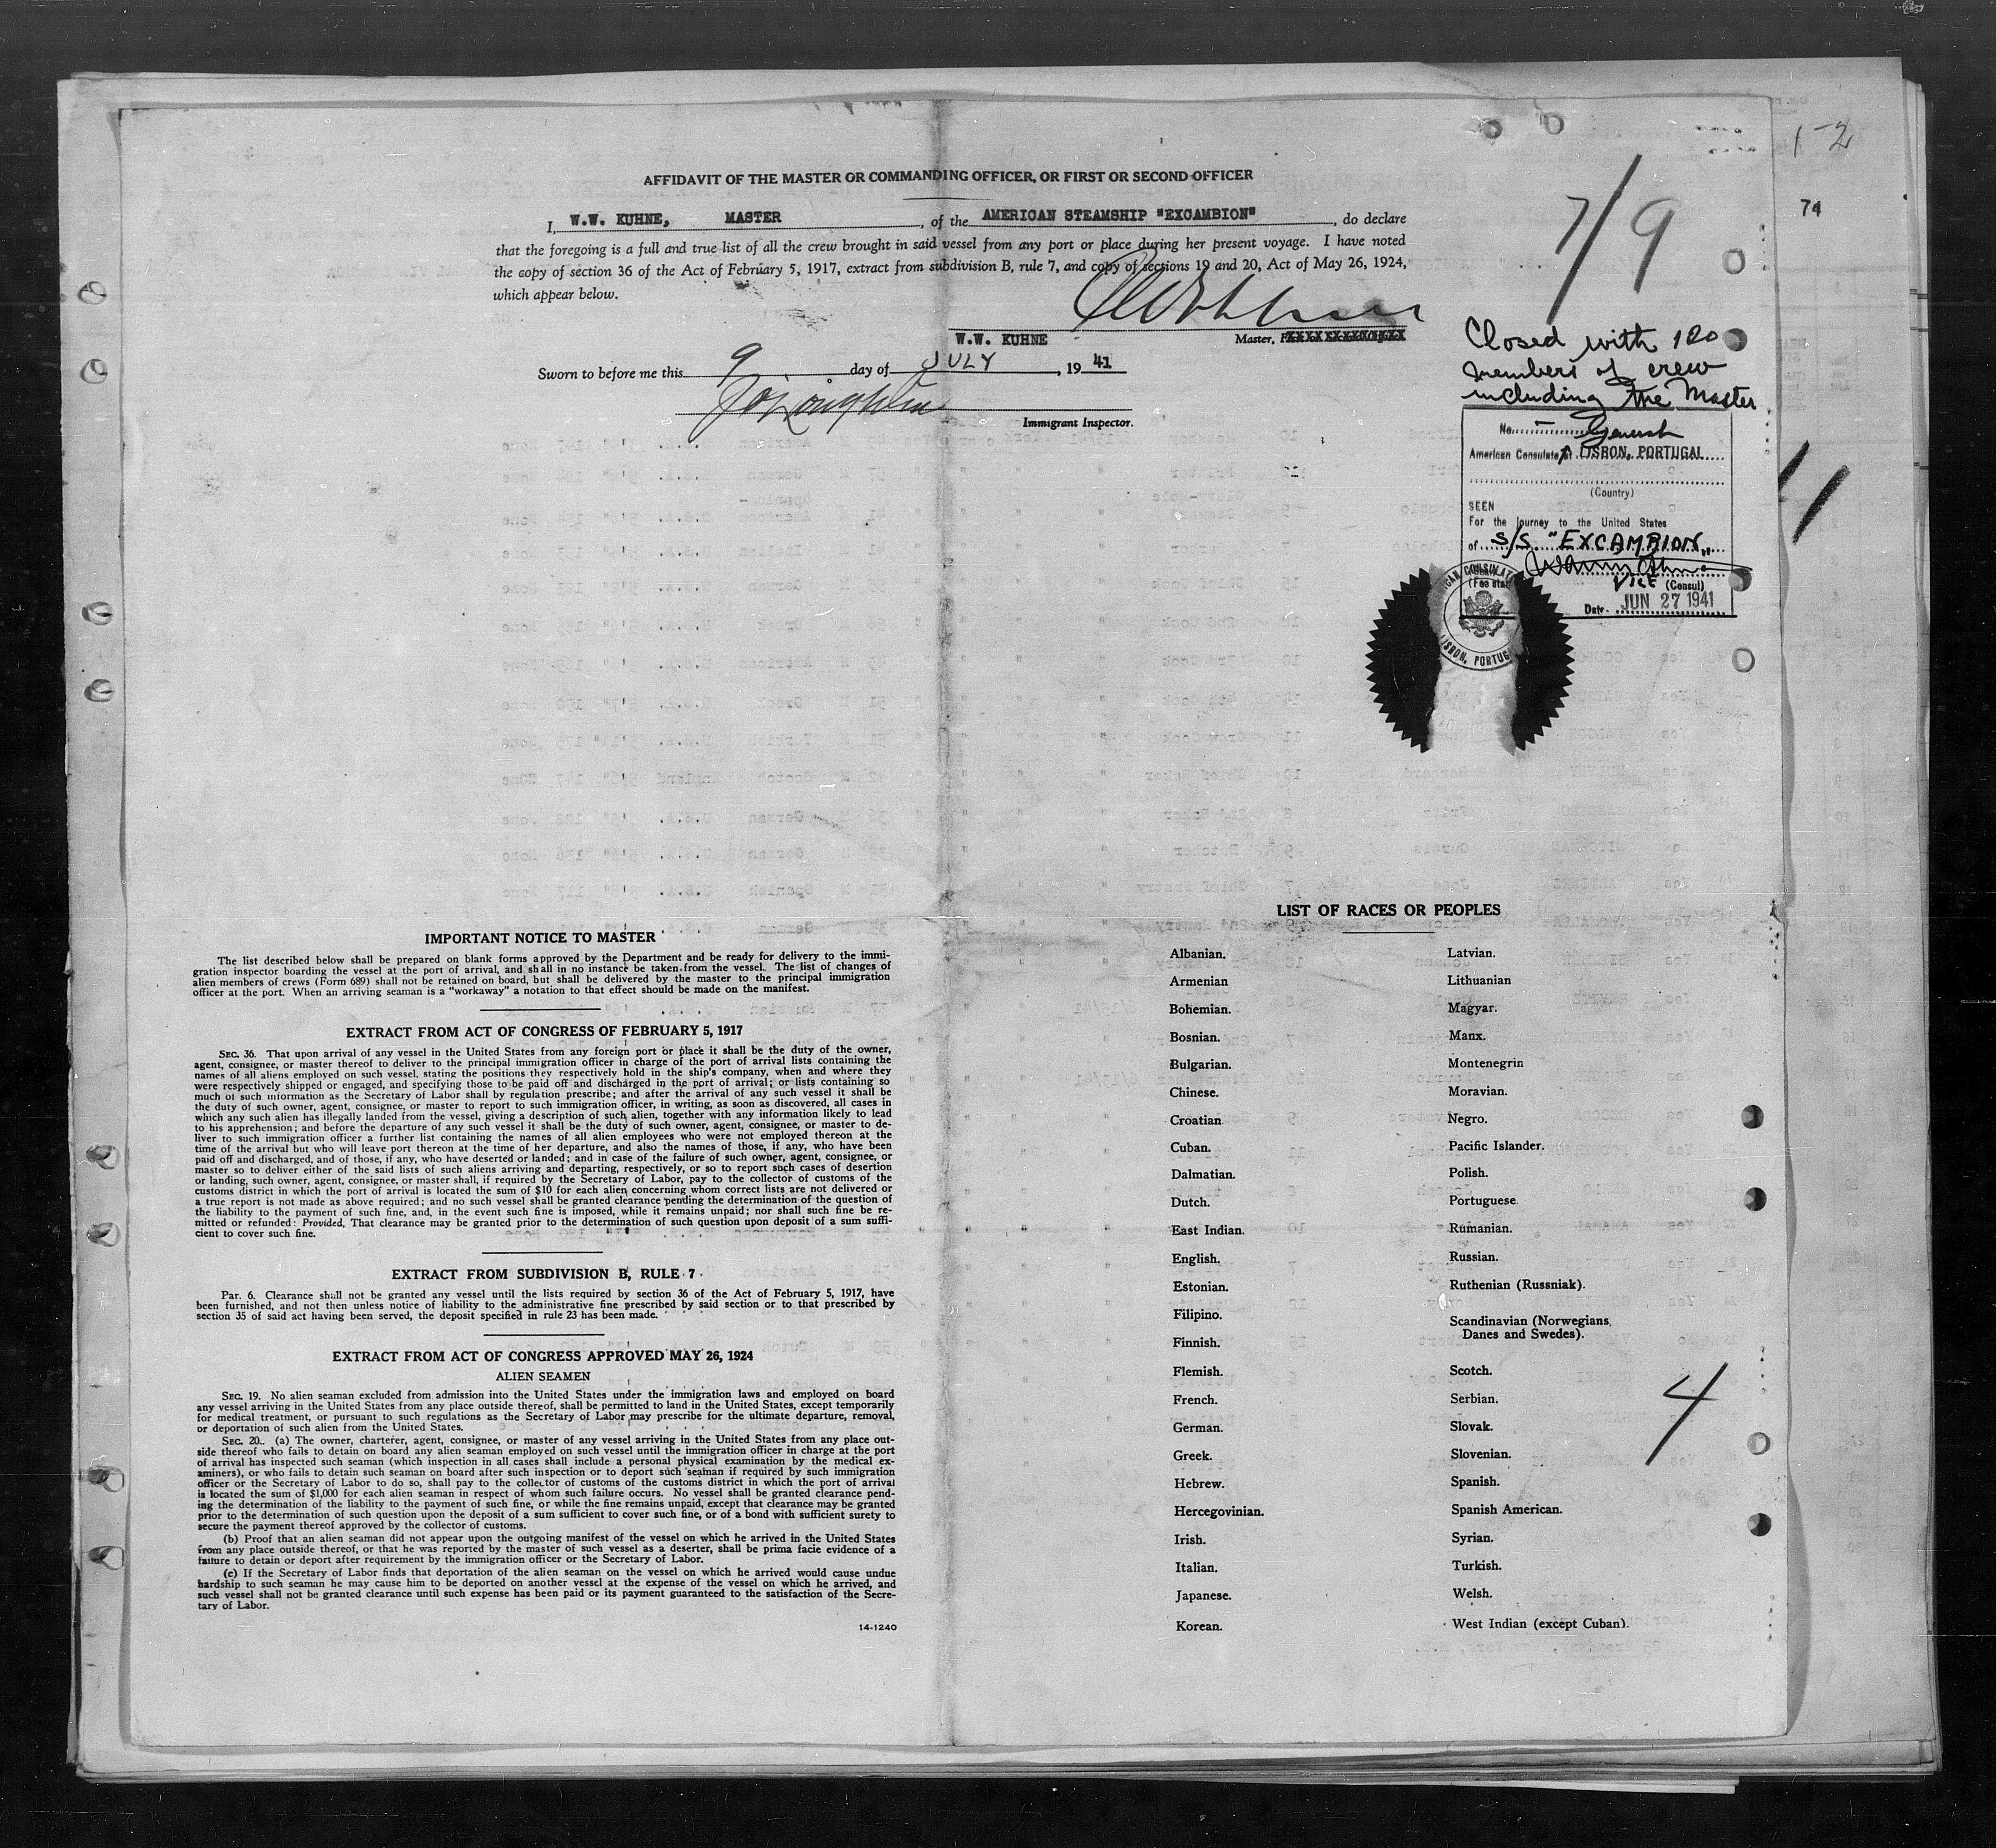 1-2
74
AFFIDAVIT OF THE MASTER OR COMMANDING OFFICER, OR FIRST OR SECOND OFFICER
7/9
I, W.W. KUHNE, MASTER, of the AMERICAN STEAMSHIP "EXCAMBION", do declare
that the foregoing is a full and true list of all the crew brought in said vessel from any port or place during her present voyage. I have noted
the copy of section 36 of the Act of February 5, 1917, extract from subdivision B, rule 7, and copy of sections 19 and 20, Act of May 26, 1924,
which appear below.
W.W. KUHNE Master,
Sworn to before me this 9 day of JULY, 19 41
Immigrant Inspector.
Closed with 120
members of crew
including the Master
No.
American Consulate LISBON, PORTUGAL
(Country)
SEEN
For the Journey to the United States
of S/S. "EXCAMBION"
VICE (Consul)
Date JUN 27 1941
LISBON, PORTUGAL
11
IMPORTANT NOTICE TO MASTER
The list described below shall be prepared on blank forms approved by the Department and be ready for delivery to the immi-
gration inspector boarding the vessel at the port of arrival, and shall in no instance be taken from the vessel. The list of changes of
alien members of crews (Form 689) shall not be retained on board, but shall be delivered by the master to the principal immigration
officer at the port. When an arriving seaman is a "workaway" a notation to that effect should be made on the manifest.
EXTRACT FROM ACT OF CONGRESS OF FEBRUARY 5, 1917
SEC. 36. That upon arrival of any vessel in the United States from any foreign port or place it shall be the duty of the owner,
agent, consignee, or master thereof to deliver to the principal immigration officer in charge of the port of arrival lists containing the
names of all aliens employed on such vessel, stating the positions they respectively hold in the ship's company, when and where they
were respectively shipped or engaged, and specifying those to be paid off and discharged in the port of arrival; or lists containing so
much of such information as the Secretary of Labor shall by regulation prescribe; and after the arrival of any such vessel it shall be
the duty of such owner, agent, consignee, or master to report to such immigration officer, in writing, as soon as discovered, all cases in
which any such alien has illegally landed from the vessel, giving a description of such alien, together with any information likely to lead
to his apprehension; and before the departure of any such vessel it shall be the duty of such owner, agent, consignee, or master to de-
liver to such immigration officer a further list containing the names of all alien employees who were not employed thereon at the
time of the arrival but who will leave port thereon at the time of her departure, and also the names of those, if any, who have been
paid off and discharged, and of those, if any, who have deserted or landed; and in case of the failure of such owner, agent, consignee, or
master so to deliver either of the said lists of such aliens arriving and departing, respectively, or so to report such cases of desertion
or landing, such owner, agent, consignee, or master shall, if required by the Secretary of Labor, pay to the collector of customs of the
customs district in which the port of arrival is located the sum of $10 for each alien concerning whom correct lists are not delivered or
a true report is not made as above required; and no such vessel shall be granted clearance pending the determination of the question of
the liability to the payment of such fine, and, in the event such fine is imposed, while it remains unpaid; nor shall such fine be re-
mitted or refunded: Provided, That clearance may be granted prior to the determination of such question upon deposit of a sum suffi-
cient to cover such fine.
EXTRACT FROM SUBDIVISION B, RULE 7
Par. 6. Clearance shall not be granted any vessel until the lists required by section 36 of the Act of February 5, 1917, have
been furnished, and not then unless notice of liability to the administrative fine prescribed by said section or to that prescribed by
section 35 of said act having been served, the deposit specified in rule 23 has been made.
EXTRACT FROM ACT OF CONGRESS APPROVED MAY 26, 1924
ALIEN SEAMEN
SEC. 19. No alien seaman excluded from admission into the United States under the immigration laws and employed on board
any vessel arriving in the United States from any place outside thereof, shall be permitted to land in the United States, except temporarily
for medical treatment, or pursuant to such regulations as the Secretary of Labor may prescribe for the ultimate departure, removal,
or deportation of such alien from the United States.
SEC. 20. (a) The owner, charterer, agent, consignee, or master of any vessel arriving in the United States from any place out-
side thereof who fails to detain on board any alien seaman employed on such vessel until the immigration officer in charge at the port
of arrival has inspected such seaman (which inspection in all cases shall include a personal physical examination by the medical ex-
aminers), or who fails to detain such seaman on board after such inspection or to deport such seaman if required by such immigration
officer or the Secretary of Labor to do so, shall pay to the collector of customs of the customs district in which the port of arrival
is located the sum of $1,000 for each alien seaman in respect of whom such failure occurs. No vessel shall be granted clearance pend-
ing the determination of the liability to the payment of such fine, or while the fine remains unpaid, except that clearance may be granted
prior to the determination of such question upon the deposit of a sum sufficient to cover such fine, or of a bond with sufficient surety to
secure the payment thereof approved by the collector of customs.
(b) Proof that an alien seaman did not appear upon the outgoing manifest of the vessel on which he arrived in the United States
from any place outside thereof, or that he was reported by the master of such vessel as a deserter, shall be prima facie evidence of a
failure to detain or deport after requirement by the immigration officer or the Secretary of Labor.
(c) If the Secretary of Labor finds that deportation of the alien seaman on the vessel on which he arrived would cause undue
hardship to such seaman he may cause him to be deported on another vessel at the expense of the vessel on which he arrived, and
such vessel shall not be granted clearance until such expense has been paid or its payment guaranteed to the satisfaction of the Secre-
tary of Labor.
14-1240
LIST OF RACES OR PEOPLES
Albanian.
Armenian
Bohemian.
Bosnian.
Bulgarian.
Chinese.
Croatian
Cuban.
Dalmatian.
Dutch.
East Indian.
English.
Estonian.
Filipino.
Finnish.
Flemish.
French.
German.
Greek.
Hebrew.
Hercegovinian.
Irish.
Italian.
Japanese.
Korean.
Latvian.
Lithuanian
Magyar.
Manx.
Montenegrin
Moravian.
Negro.
Pacific Islander.
Polish.
Portuguese
Rumanian.
Russian.
Ruthenian (Russniak).
Scandinavian (Norwegians,
Danes and Swedes).
Scotch.
Serbian.
Slovak.
Slovenian.
Spanish.
Spanish American.
Syrian.
Turkish.
Welsh.
West Indian (except Cuban).
4